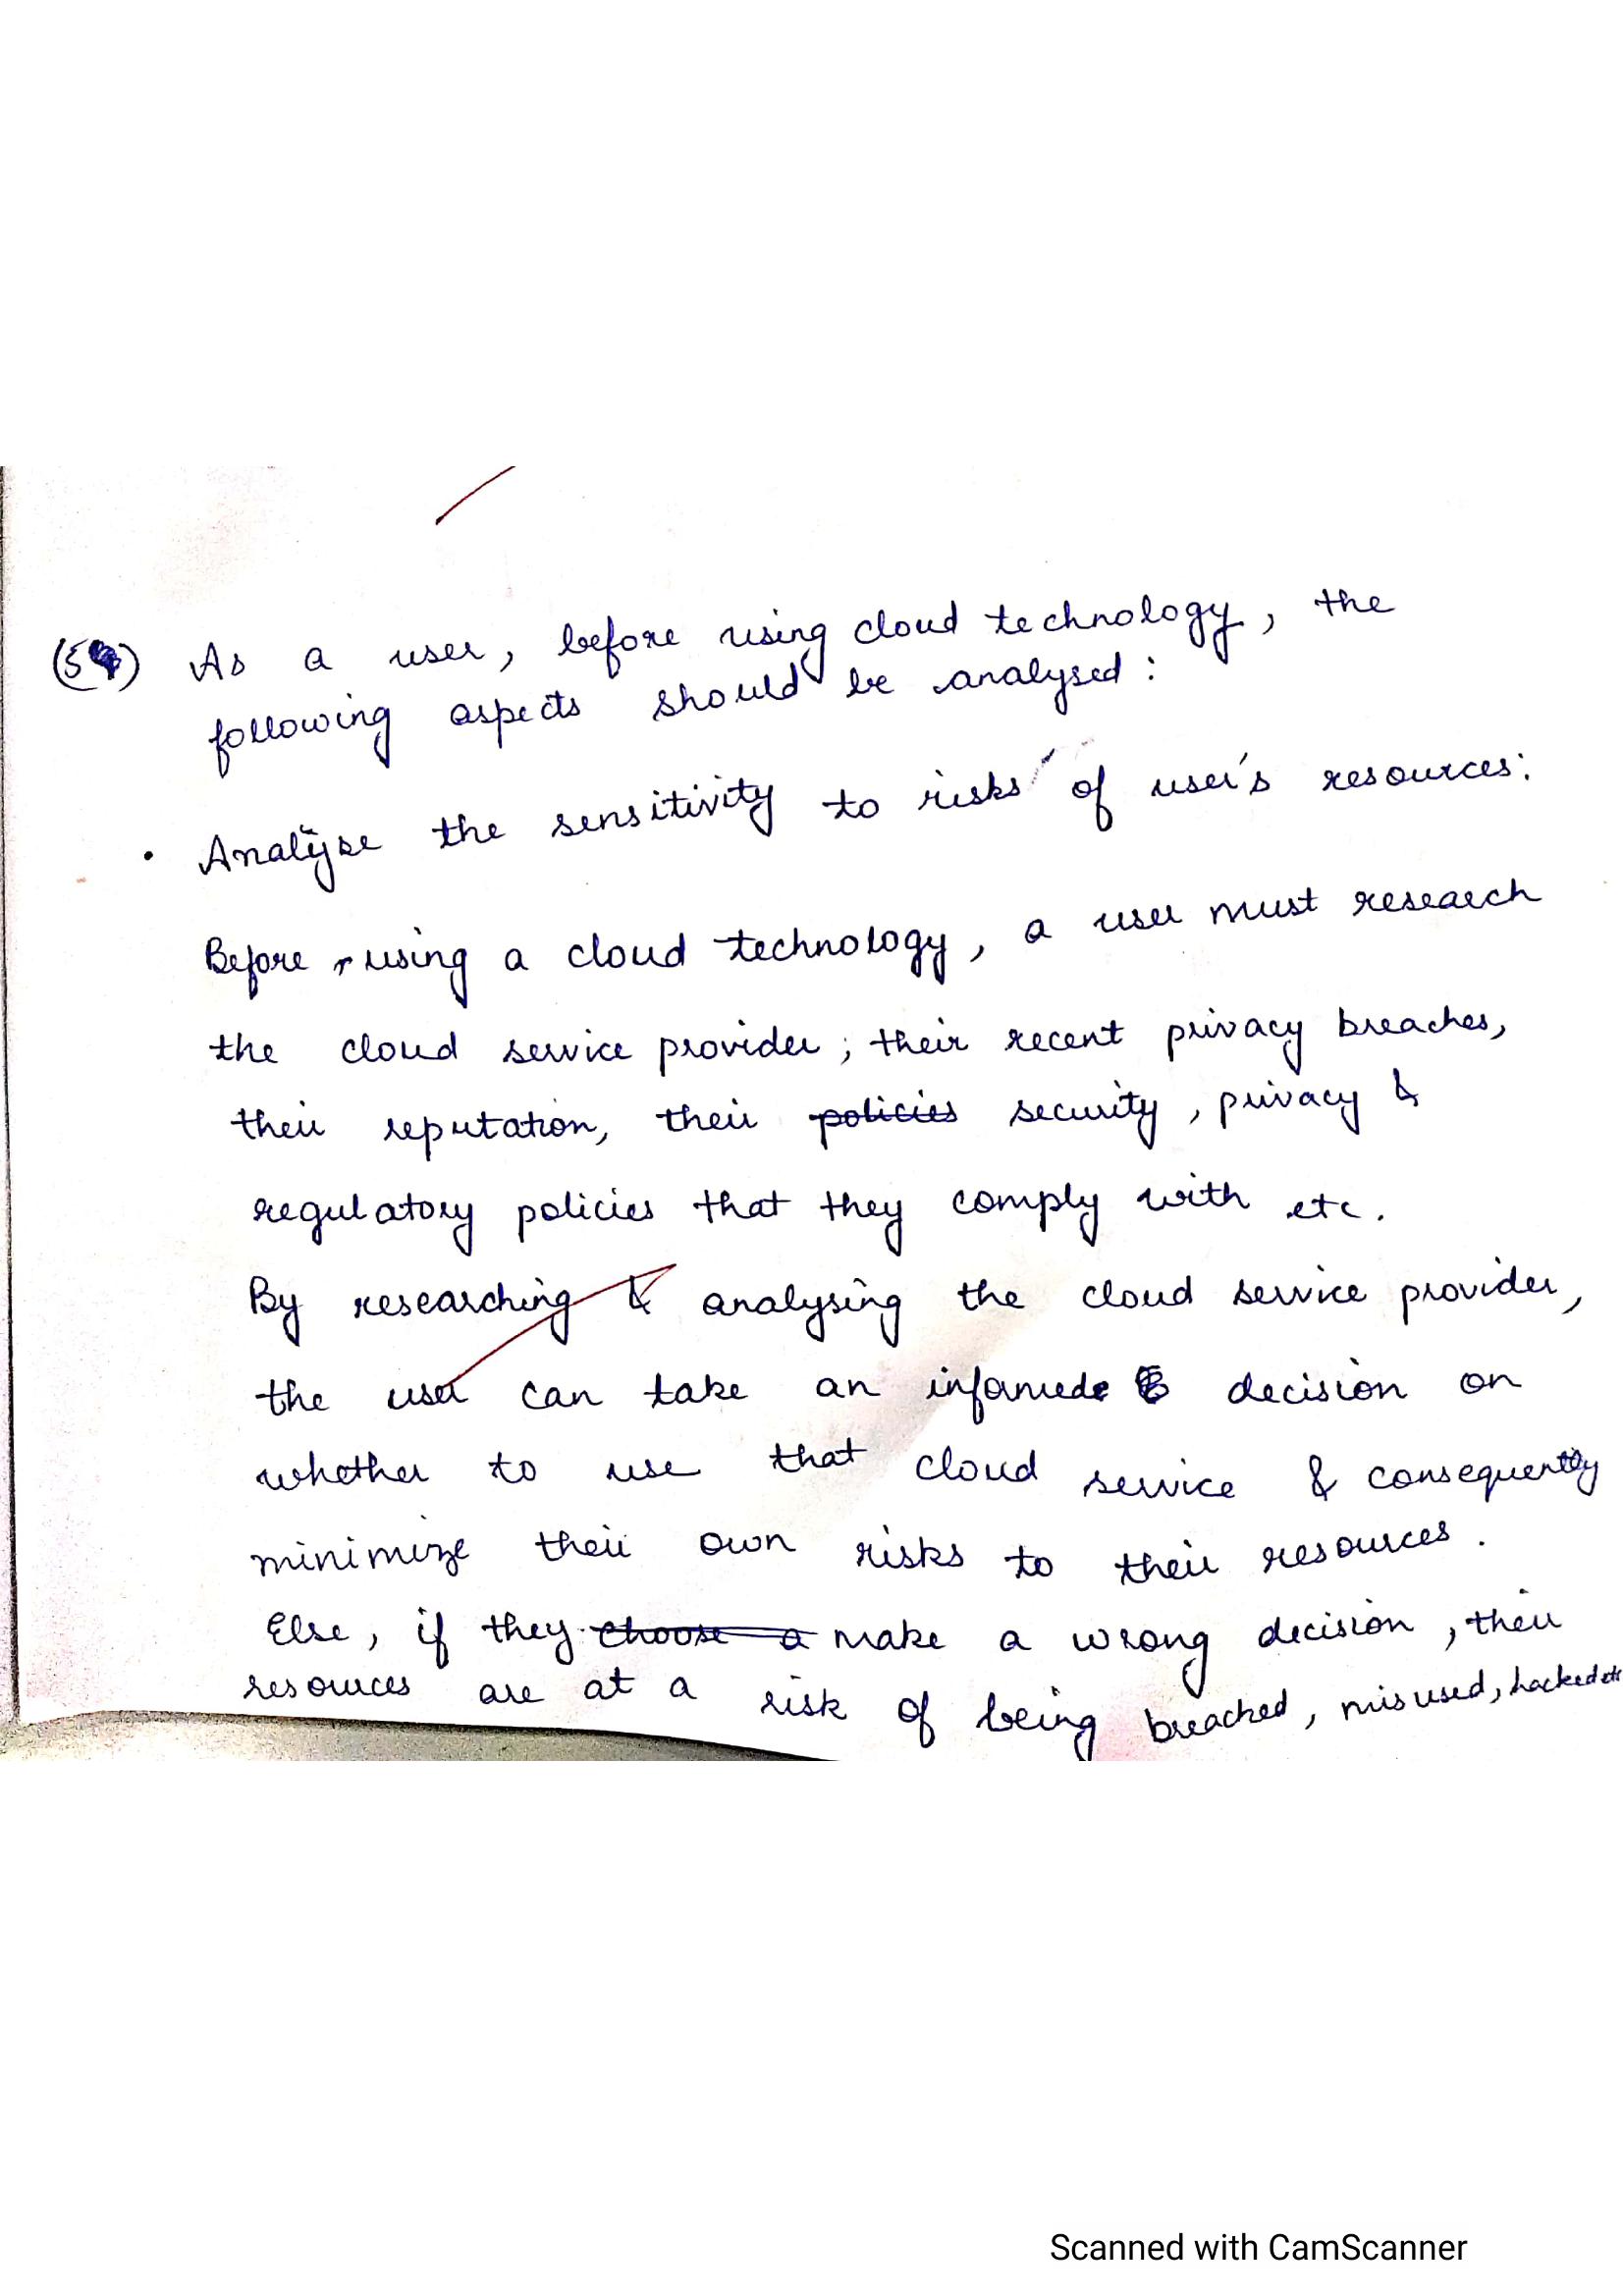 (5) As a user, before using cloud technology, the
following aspects should be analysed:
• Analyse the sensitivity to risks of user's resources:
Before using a cloud technology, a user must research
the cloud service provider; their recent privacy breaches,
their reputation, their policies security, privacy &
regulatory policies that they comply with etc.
By researching & analysing the cloud service provider,
the user can take an informed decision on
whether to use that cloud service & consequently
minimize their own risks to their resources.
Else, if they choose a make a wrong decision, their
resources are at a risk of being breached, misused, hacked etc
Scanned with CamScanner